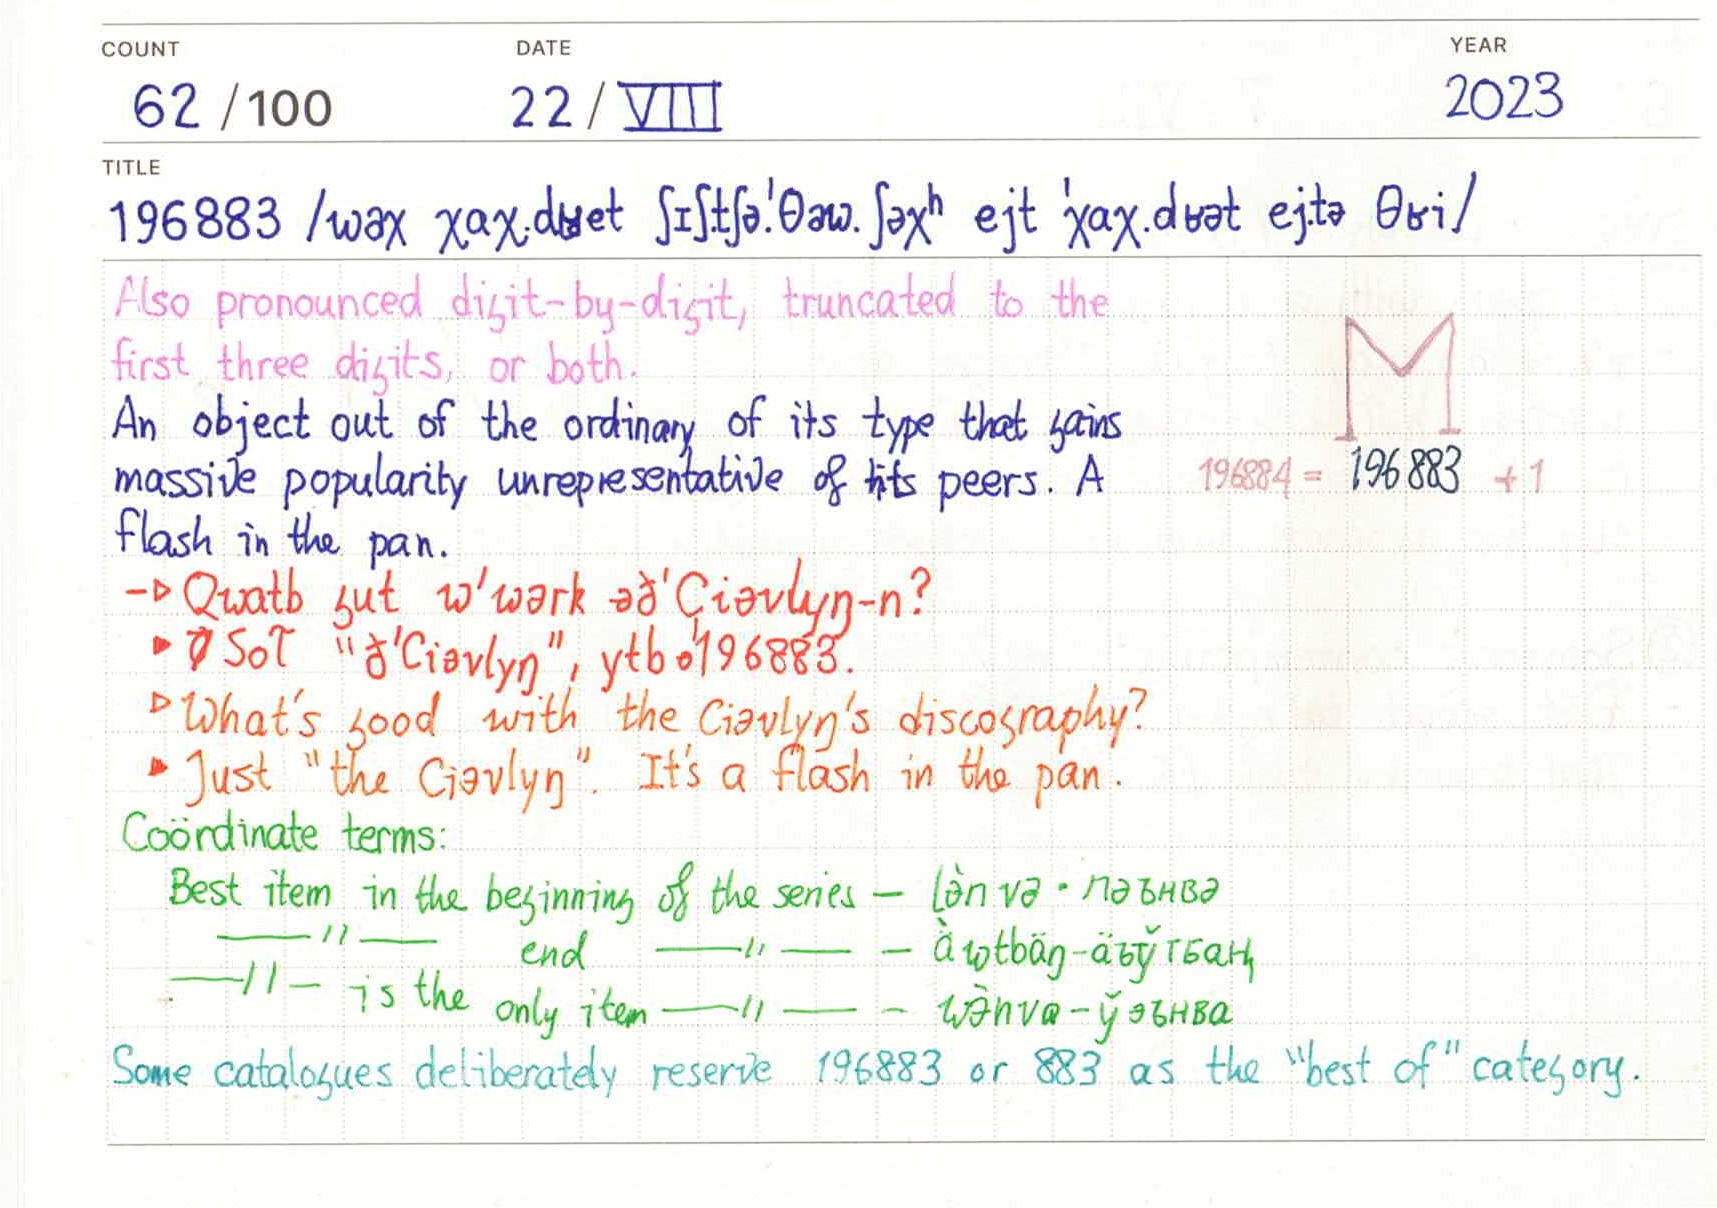 COUNT DATE YEAR
62 /100 22 / VIII 2023
TITLE
196883 /wəχ χaχ.dʁet ʃɪʃ.tʃə.ˈθəw.ʃəχʰ ejt ˈχaχ.dʁət ej.tə θʁi/
Also pronounced digit-by-digit, truncated to the
first three digits, or both.
An object out of the ordinary of its type that gains
massive popularity unrepresentative of its peers. A
flash in the pan.
M
196884 = 196883 + 1
-▷ Qwatb gut w'wərk əð'Çiəvlyŋ-n?
▶ Ø SoT "ð'Ciəvlyŋ", ytb 196883.
▷ What's good with the Ciəvlyŋ's discography?
▶ Just "the Ciəvlyŋ". It's a flash in the pan.
Coördinate terms:
Best item in the beginning of the series – lə̀n və · ләънвә
—〃— end —〃— – àwtbäŋ - äъў тбаң
—〃— is the only item —〃— – wə̀nva - ўəънва
Some catalogues deliberately reserve 196883 or 883 as the "best of" category.